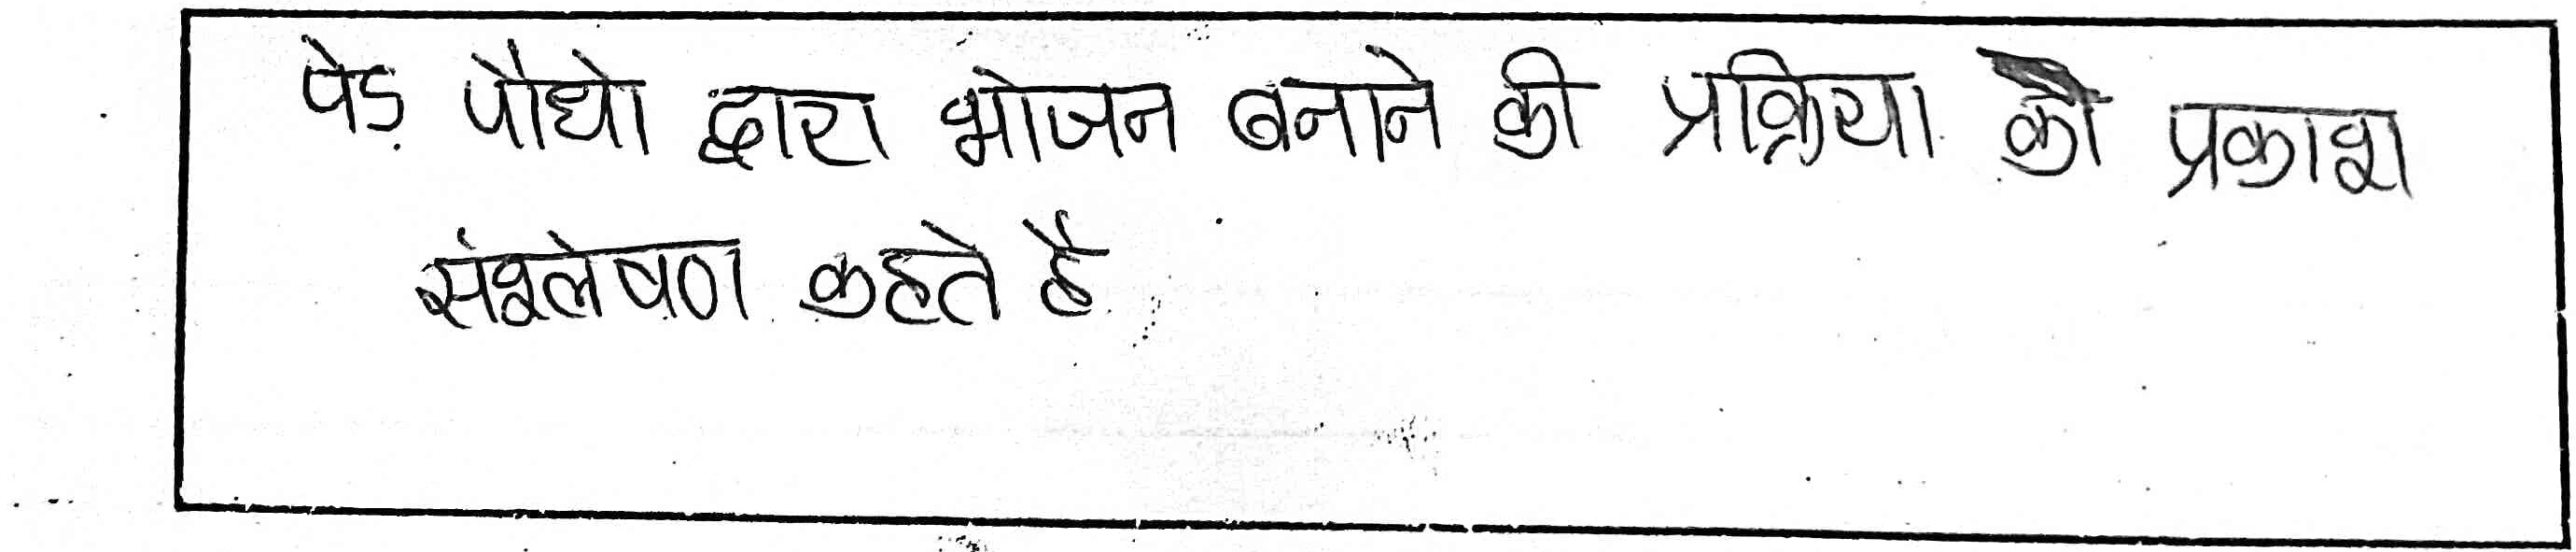 पेड़ पौधो द्वारा भोजन बनाने की प्रक्रिया को प्रकाश
संश्लेषण कहते है